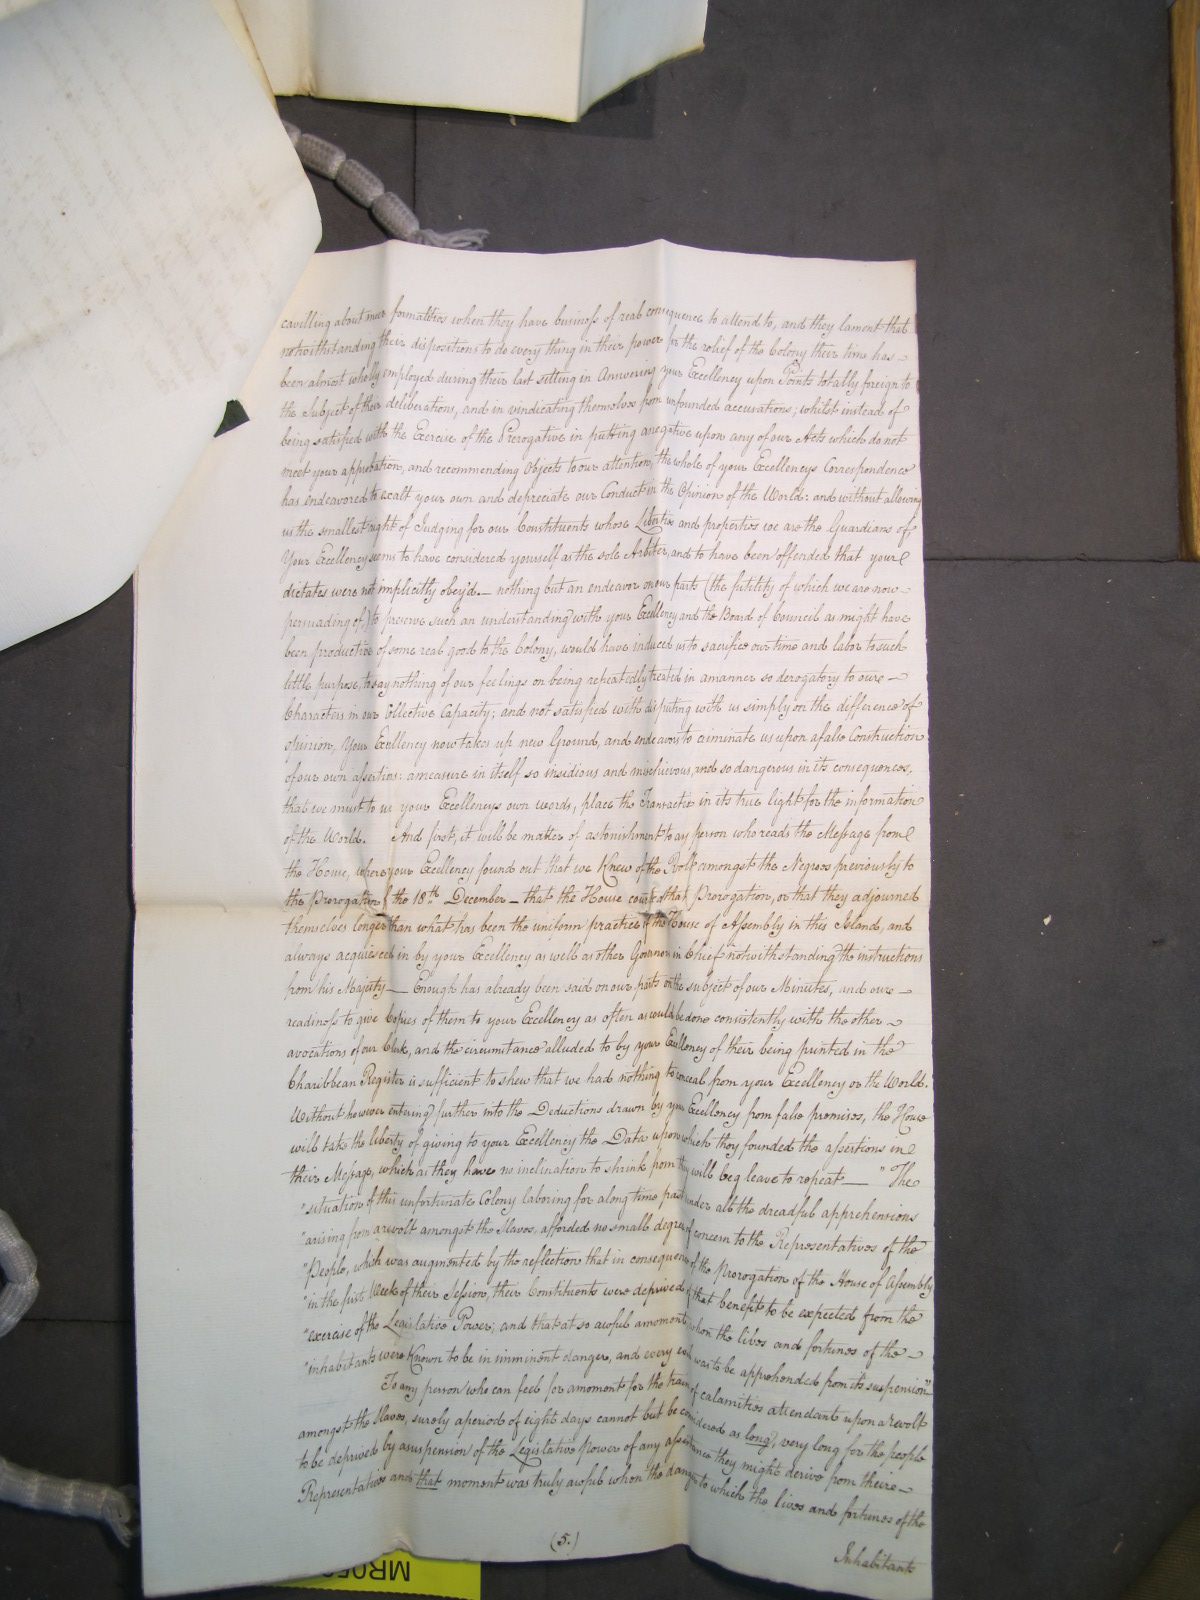 cavilling about mere formalities when they have business of real consequence to attend to, and they lament that
notwithstanding their dispositions to do every thing in their power for the relief of the Colony their time has
been almost wholly employed during their last setting in Answering your Excellency upon Points totally foreign to
the Subject of their deliberations, and in vindicating themselves from unfounded accusations; whilst instead of
being satisfied with the Exercise of the Prerogative in putting a negative upon any of our Acts which do not
meet your approbation, and recommending Objects to our attention, the whole of your Excellencys Correspondence
has endeavored to exalt your own and depreciate our Conduct in the Opinion of the World: and without allowing
us the smallest right of Judging for our Constituents whose Liberties and properties we are the Guardians of
Your Excellency seems to have considered yourself as the sole Arbiter, and to have been offended that your
dictates were not implicitly obey'd. — nothing but an endeavor on our parts (the futility of which we are now
persuading of,) to preserve such an understanding with your Excellency and the Board of Council as might have
been productive of some real good to the Colony, would have induced us to sacrifice our time and labor to such
little purpose, to say nothing of our feelings on being repeatedly treated in a manner so derogatory to our —
Characters in our Collective Capacity; and not satisfied with disputing with us simply on the difference of
opinion, Your Excellency now takes up new Ground, and endeavors to criminate us upon a false Construction
of our own assertion: a measure in itself so insidious and mischievous, and so dangerous in its consequences.
that we must to use your Excellencys own words, place the Transaction in its true light for the information
of the World. And first, it will be matter of astonishment to any person who reads the Message from
the House, where your Excellency found out that we Knew of the Revolt amongst the Negroes previously to
the Prorogation of the 18th December — that the House courted that Prorogation, or that they adjourned
themselves longer than what has been the uniform practice of the House of Assembly in this Island, and
always acquiesced in by your Excellency as well as other Governors in Chief notwithstanding the instructions
from his Majesty — Enough has already been said on our parts on the subject of our Minutes, and our —
readiness to give Copies of them to your Excellency as often as could be done consistently with the other
avocations of our Clerk, and the circumstance alluded to by your Excellency of their being printed in the
Charibbean Register is sufficient to shew that we had nothing to conceal from your Excellency or the World.
Without however entering further into the Deductions drawn by your Excellency from false premises, the House
will take the liberty of giving to your Excellency the Data upon which they founded the assertions in
their Message, which as they have no inclination to shrink from they will beg leave to repeat — "The
"situation of this unfortunate Colony laboring for a long time past under all the dreadful apprehensions
"arising from a revolt amongst the Slaves, afforded no small degree of concern to the Representatives of the
"People, which was augmented by the reflection that in consequence of the Prorogation of the House of Assembly
"in the first Week of their Session, their Constituents were deprived of that benefit to be expected from the
"exercise of the Legislative Power; and that at so awful a moment when the lives and fortunes of the
"inhabitants were Known to be in imminent danger, and every evil was to be apprehended from its suspension"
To any person who can feel for a moment for the train of calamities attendant upon a revolt
amongst the Slaves, surely a period of eight days cannot but be considered as long, very long for the people
to be deprived by a suspension of the Legislative power of any assistance they might derive from their —
Representatives and that moment was truly awful when the danger to which the lives and fortunes of the
(5.)
Inhabitants